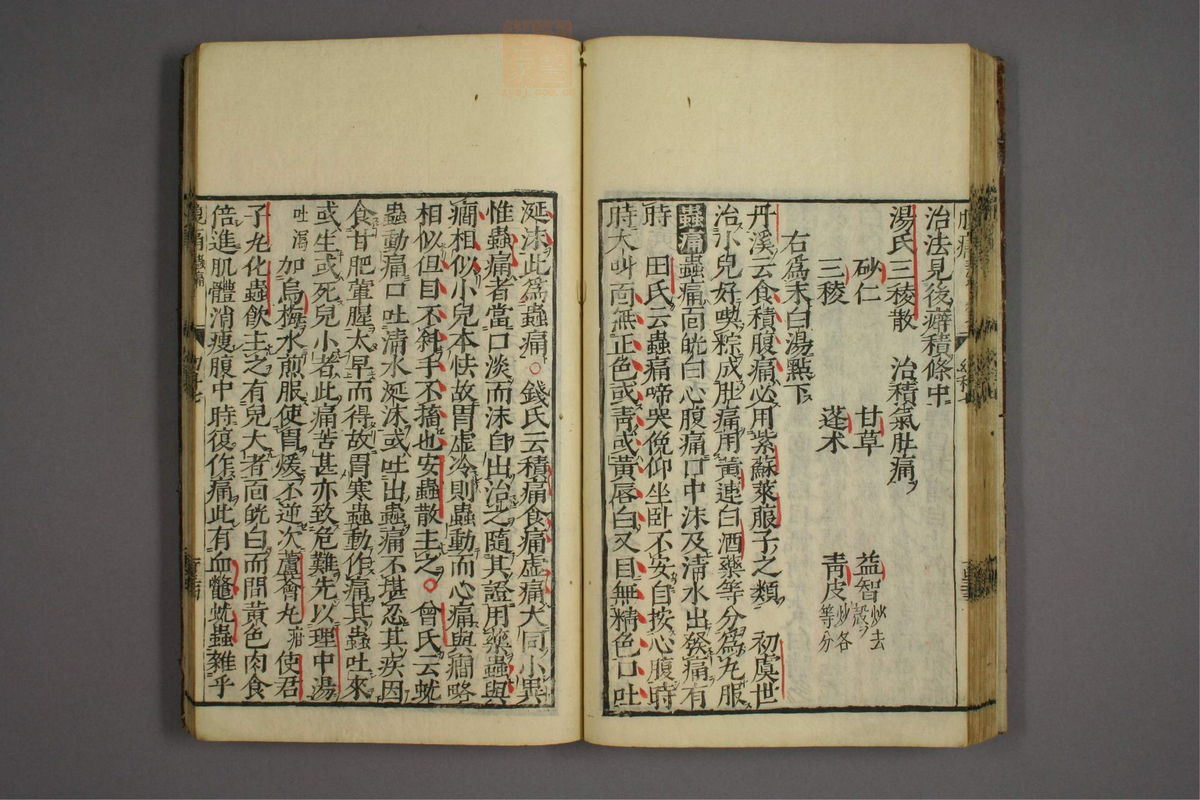 治法見後癖積條中
湯氏三稜散　治積氣肚痛
砂仁　甘草　益智炒去殼
三稜　蓬术　青皮炒各等分
右爲末白湯點下
丹溪云食積腹痛必用紫蘇萊菔子之類　初虞世
治小兒好喫粽成肚痛用黃連白酒藥等分爲丸服
蟲痛蟲痛面㿠白心腹痛口中沫及淸水出發痛有
時　田氏云蟲痛啼哭俛仰坐卧不安自按心腹時
時大叫面無正色或靑或黃唇白又目無精色口吐
涎沫此爲蟲痛○錢氏云積痛食痛虛痛大同小異
惟蟲痛者當口淡而沫自出治之隨其證用藥蟲與
癇相似小兒本怯故胃虛冷則蟲動而心痛與癇略
相似但目不斜手不搐也安蟲散主之○曾氏云蚘
蟲動痛口吐清水涎沫或吐出蟲痛不堪忍其疾因
食甘肥葷腥太早而得故胃寒蟲動作痛其蟲吐來
或生或死兒小者此痛苦甚亦致危難先以理中湯
吐瀉加烏梅水煎服使胃煖不逆次蘆薈丸疳使君
子丸化蟲飲主之有兒大者面㿠白而間黃色肉食
倍進肌體消瘦腹中時復作痛此有血鼈蚘蟲雜乎